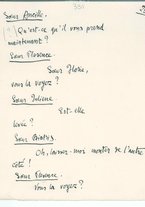 331
Sœur Amélie.
Qu'est-ce qu'il vous prend
maintenant ?
Sœur Florence
Sœur Gloire,
vous la voyez ?
Sœur Julienne
Est-elle
levée ?
Sœur Béatrix.
Oh, laissez-moi monter de l'autre
côté !
Sœur Florence.
Vous la voyez ?